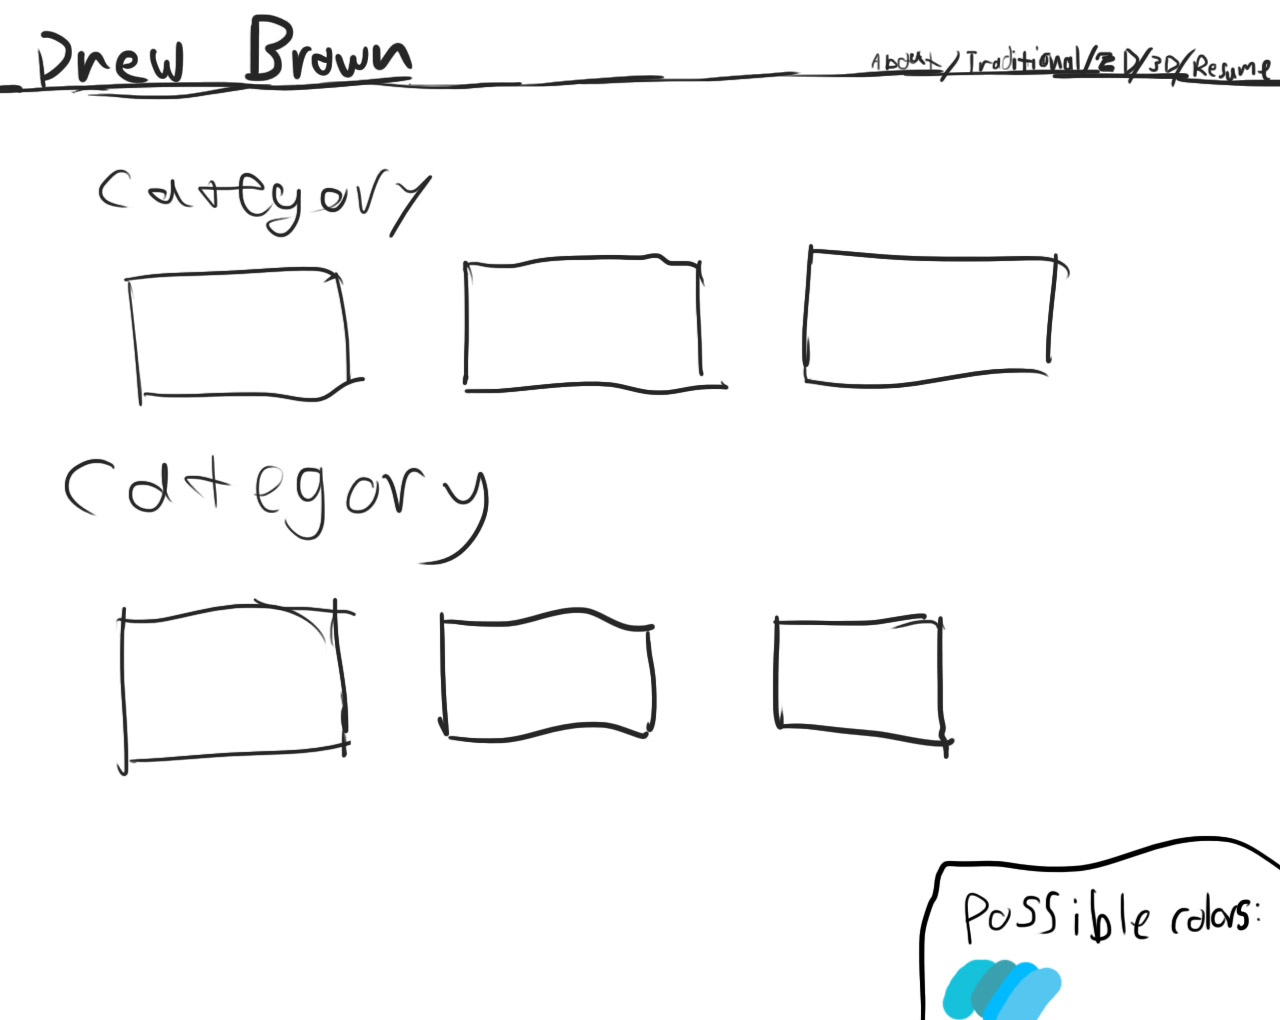 Drew Brown
About/Traditional/2D/3D/Resume
Category
Category
Possible colors: